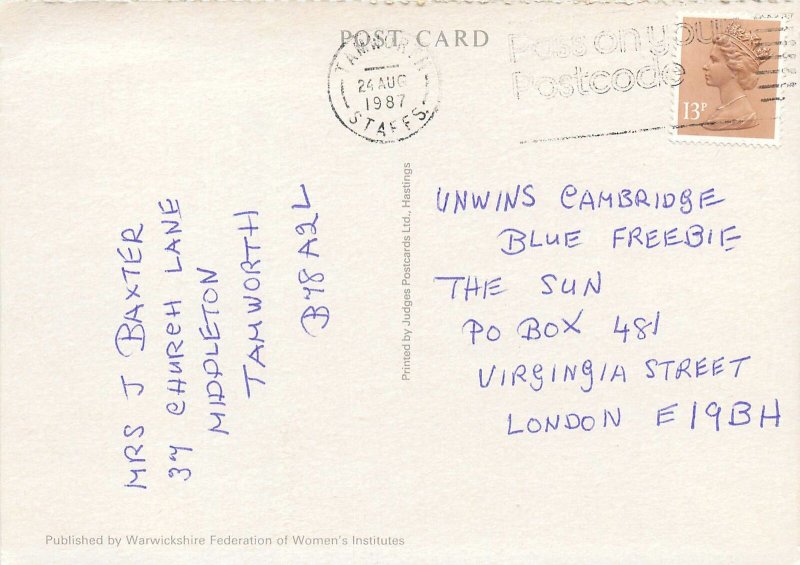 POST CARD
TAMWORTH
24 AUG
1987
STAFFS.
Pass on your
Postcode
13P
MRS J BAXTER
37 CHURCH LANE
MIDDLETON
TAMWORTH
B78 A2L
Printed by Judges Postcards Ltd., Hastings
UNWINS CAMBRIDGE
BLUE FREEBIE
THE SUN
PO BOX 481
VIRGINGIA STREET
LONDON E19BH
Published by Warwickshire Federation of Women's Institutes